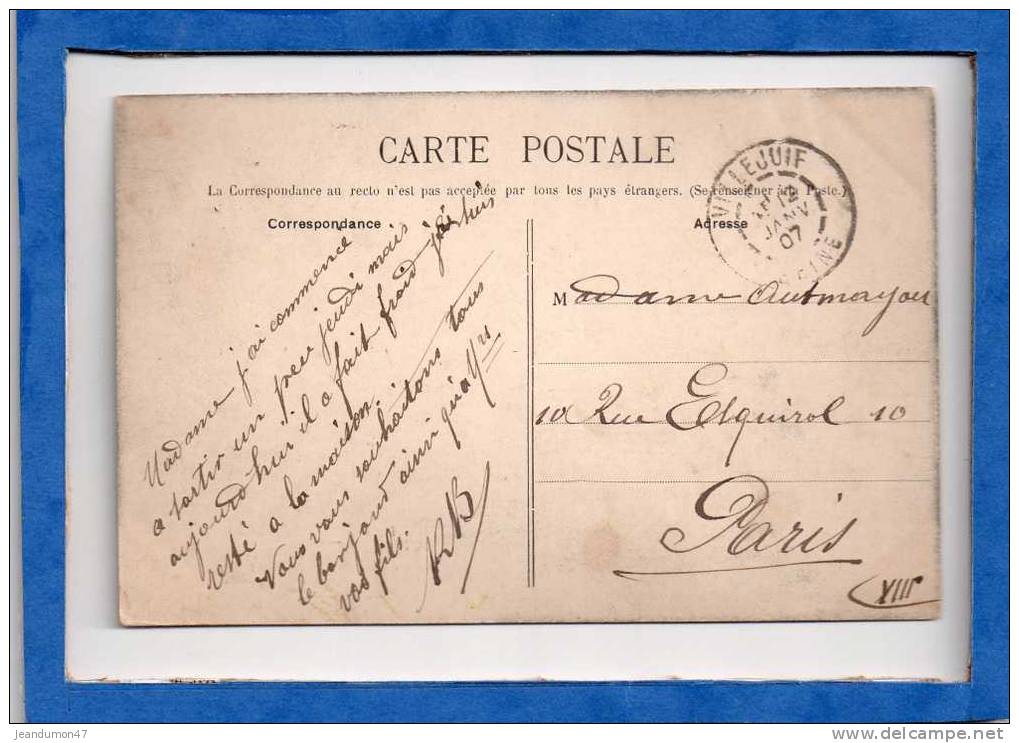 CARTE POSTALE
La Correspondance au recto n'est pas acceptée par tous les pays étrangers. (Se renseigner à la Poste.)
Correspondance
Adresse
VILLEJUIF
12
JANV
07
SEINE
Madame j'ai commencé
a sortir un peu jeudi mais
aujourd'hui il a fait froid je suis
resté a la maison.
Nous vous souhaitons tous
le bonjour ainsi qu'a Yrs
vos fils.
Madame Autmayou
10 Rue Esquirol 10
Paris
XIII
jeandumon47
www.delcampe.net